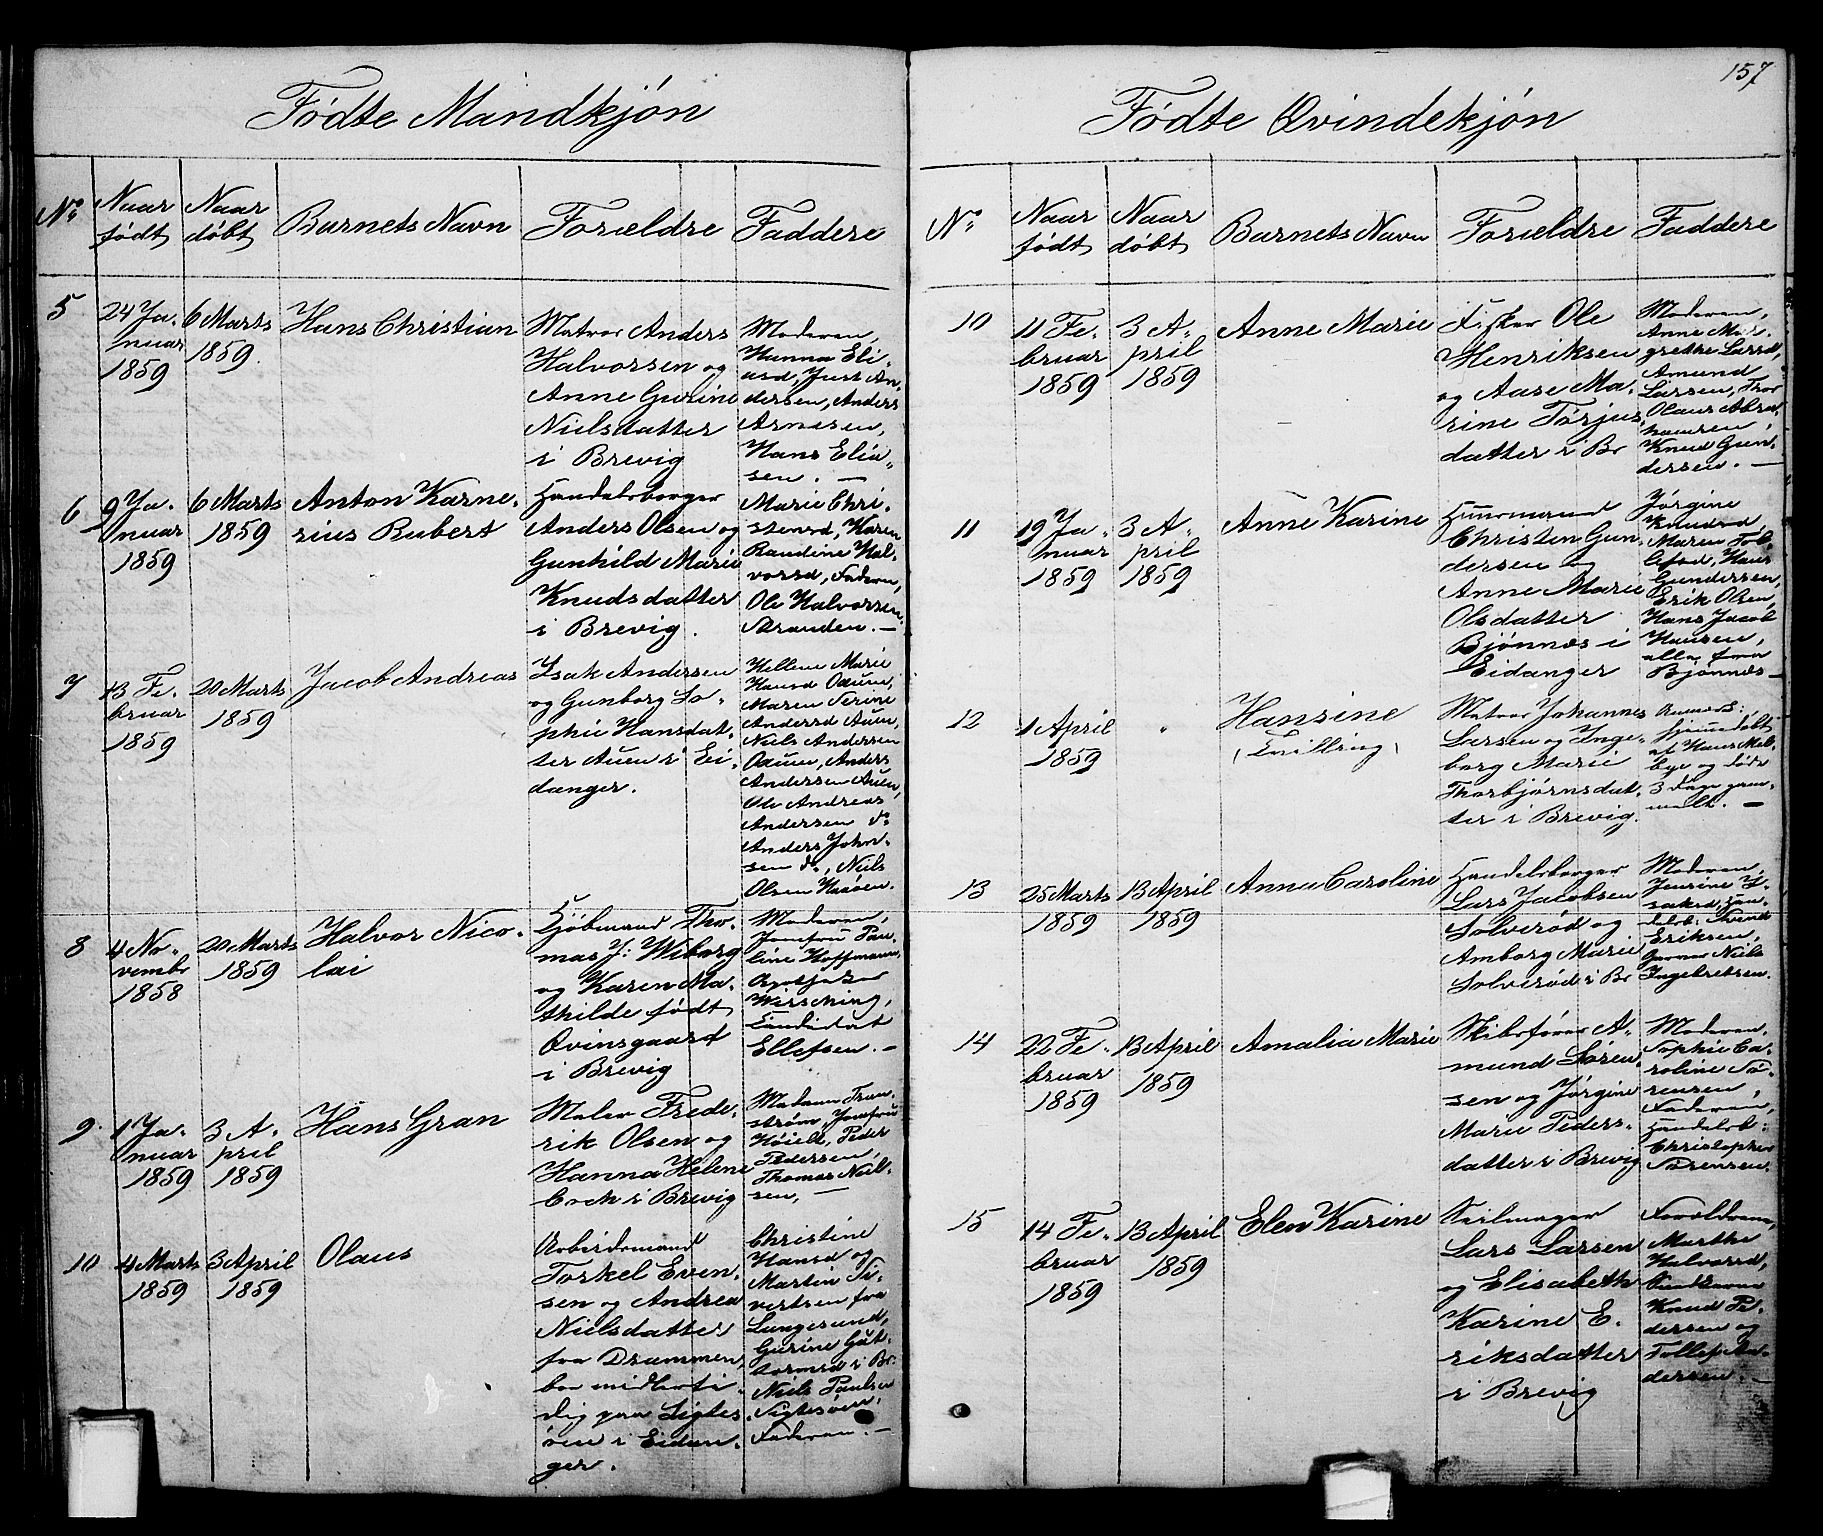 157
Fødte Mandkjøn
No
Naar født
Naar døbt
Barnets Navn
Forældre
Faddere
5
24 Ja-
nuar
1859
6 Marts
1859.
Hans Christian
Matros Anders
Halvorsen og
Anne Gurine
Nielsdatter
i Brevig
Moderen,
Hanna Eli-
asd, Just An-
dersen, Anders
Arnesen,
Hans Elia-
sen. —
6
9 Ja-
nuar
1859
6 Marts
1859
Anton Karne-
rius Rubert
Handelsborger
Anders Olsen og
Gunhild Marie
Knudsdatter
i Brevig.
Marie Chri-
stensd, Karen
Randine Hal-
vorsd, Faderen,
Ole Halvorsen
Stranden. —
7
13 Fe-
bruar
1859
20 Marts
1859
Jacob Andreas
Isak Andersen
og Gunborg So-
phie Hansdat-
ter Auen i Ei-
danger.
Hellene Marie
Hansd Oduen,
Maren Serine
Andersd Auen,
Niels Andersen
Oduen, Anders
Andersen Auen,
Ole Andreas
Andersen do
Anders John-
sen do, Niels
Olsen Haaøen.
8
4 No-
vembr
1858
20 Marts
1859
Halvor Nico-
lai
Kjøbmand Tho-
mas J: Wiborg
og Karen Ma-
thilde født
Qvinsgaard
i Brevig
Moderen,
Jomfru Pau-
line Hoffmann,
Apotheker
Wirsching,
Candidat
Ellefsen. —
9.
1 Ja-
nuar
1859
3 A-
pril
1859
Hans Gran
Maler Frede-
rik Olsen og
Hanna Helene
i Brevig
Madame
Jomfru
Peder
Pedersen,
Thomas Niel-
sen, —
10
4 Marts
1859
3 April
1859
Olaus
Arbeidsmand
Torkel Even-
sen og Andrea
Nielsdatter
fra Drammen,
boe midlerti-
dig paa Sigtes-
øen i Eidan-
ger.
Christine
Hansd og
Martin Si-
vertsen fra
Langesund,
Gurine Gut-
tormsd i Br:
Niels Paulsen
Sigtesøen,
Faderen. —
Fødte Qvindekjøn
No
Naar født
Naar døbt
Barnets Navn
Forældre
Faddere
10
11 Fe-
bruar
1859
3 A-
pril
1859
Anne Marie
Fisker Ole
Henriksen
og Aase Ma-
rine Torjus-
datter i Br
Moderen,
Anne Mar-
grethe Larsd,
Amund
Larsen, Thor
Olaus Abra-
hamsen,
Knud Gun-
dersen. —
11
19 Ja-
nuar
1859
3 A-
pril
1859
Anne Karine
Huusmand
Christen Gun-
dersen og
Anne Marie
Olsdatter
Bjønnæs i
Eidanger
Jørgine
Knudsd,
Maren Tol-
lefsd, Hans
Gundersen,
Erik Olsen,
Hans Jacob
Hansen,
alle fra
Bjønnæs —
12
1 April
1859
"
Hansine
(Tvilling)
Matros Johannes
Larsen og Inge-
borg Marie
Thorbjørnsdat-
ter i Brevig.
Anmærk:
hjemmedøbt
af Hans Mel-
bye og døde
3 dage gam-
melt. —
13
25 Marts
1859
13 April
1859
Anna Caroline
Handelsborger
Lars Jacobsen
Solverød og
Amborg Marie
Solverød i Br
Moderen,
Jensine I-
saksd,
Svend
Eriksen,
Niels
Ingebretsen.
14
22 Fe-
bruar
1859
13 April
1859
Amalia Marie
Skibsfører A-
mund Søren-
sen og Jørgine
Marie Peders-
datter i Brevig
Moderen,
Sophie Ca-
roline Sø-
rensen,
Faderen,
Handelsb:
Christopher
Sørensen.
15
14 Fe-
bruar
1859
13 April
1859
Elen Karine
Seilmager
Lars Larsen
og Elisabeth
Karine E-
riksdatter
i Brevig
Forældrene,
Marthe
Halvorsd,
Knud Pe-
dersen og
Tollef An-
dersen. —